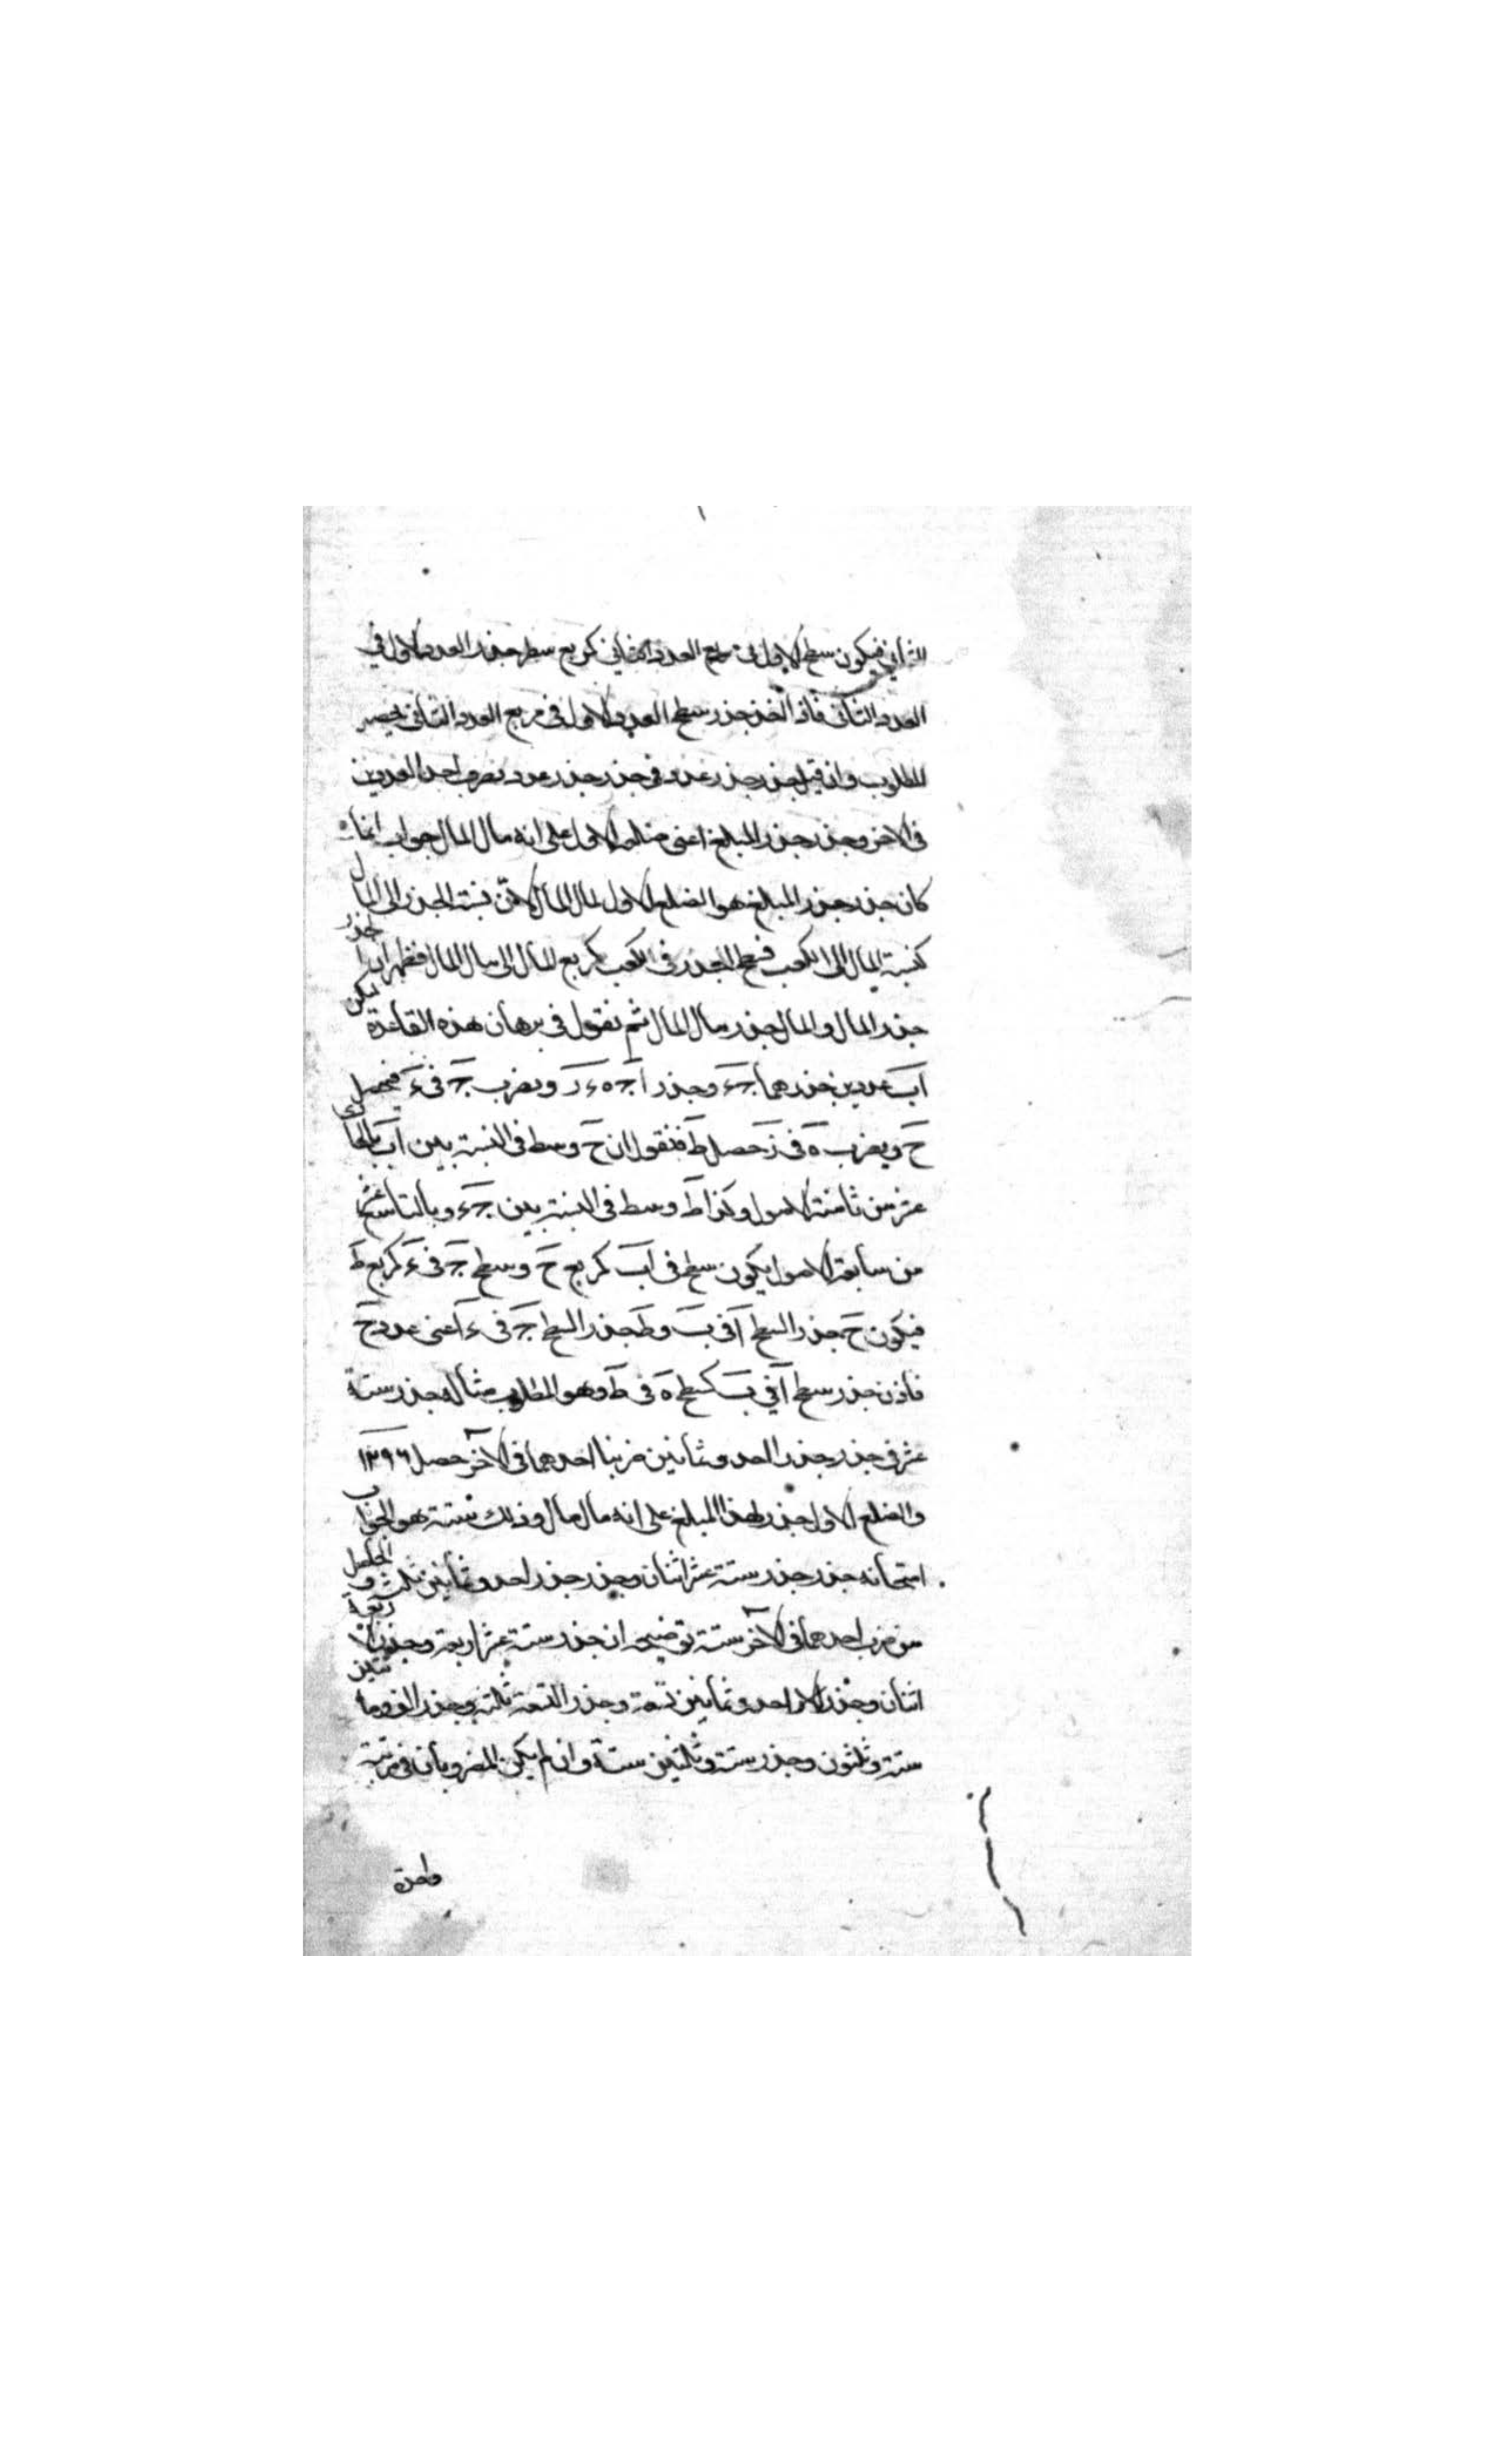 الثاني فيكون سطح الاول في مربع العدد الثاني كمربع سطح جذر العدد الاول في
العدد الثاني فاذا اخذ جذر سطح العدد الاول في مربع العدد الثاني يحصل
المطلوب وان قيل جذر جذر عدد في جذر جذر عدد نضرب احد العددين
في الاخر وجذر جذر المبلغ اعني ضلعه الاول على انه مال المال جواب انما
كان جذر جذر المبلغ هو الضلع الاول لمال المال لان نسبة الجذر الى المال
كنسبة المال الى الكعب فسطح الجذر في الكعب كمربع المال الى مال المال فظهر ان الجذر
جذر المال والمال جذر مال المال ثم نقول في برهان هذه القاعدة ليكن
اب عددين جذرهما جء وجذر اجء ه ر ويضرب ج في ء فيحصل
ح ويضرب ه في ز حصل ط فنقول ان ح وسط في النسبة بين اب بالحادي
عشر من ثامنة الاصول وكذا ط وسط في النسبة بين جء وبالتاسع عشر
من سابعة الاصول يكون سطح في اب كمربع ح وسطح ج في ء كمربع ط
فيكون ح جذر السطح ا في ب وط جذر السطح ج في ء اعني عدد ح
فاذن جذر سطح ا في ب كسطح ه في ط وهو المطلوب مثاله جذر ستة
عشر في جذر جذر احد وثمانين ضربنا احدهما في الآخر حصل ١٢٩٦
والضلع الاول جذر لهذا المبلغ على انه مال مال وذلك ستة هو الجواب
امتحانه جذر جذر ستة عشر اثنان وجذر جذر احد وثمانين ثلث و الحاصل
من ضرب احدهما في الآخر ستة توضيحه ان جذر ستة عشر اربعة وجذر الاربعة
اثنان وجذر الاحد وثمانين تسعة وجذر التسعة ثلثة وجذر الف ومائتين
ستة وثلثون وجذر ستة وثلثين ستة وان لم يكن المضروبان في مرتبة
واحدة